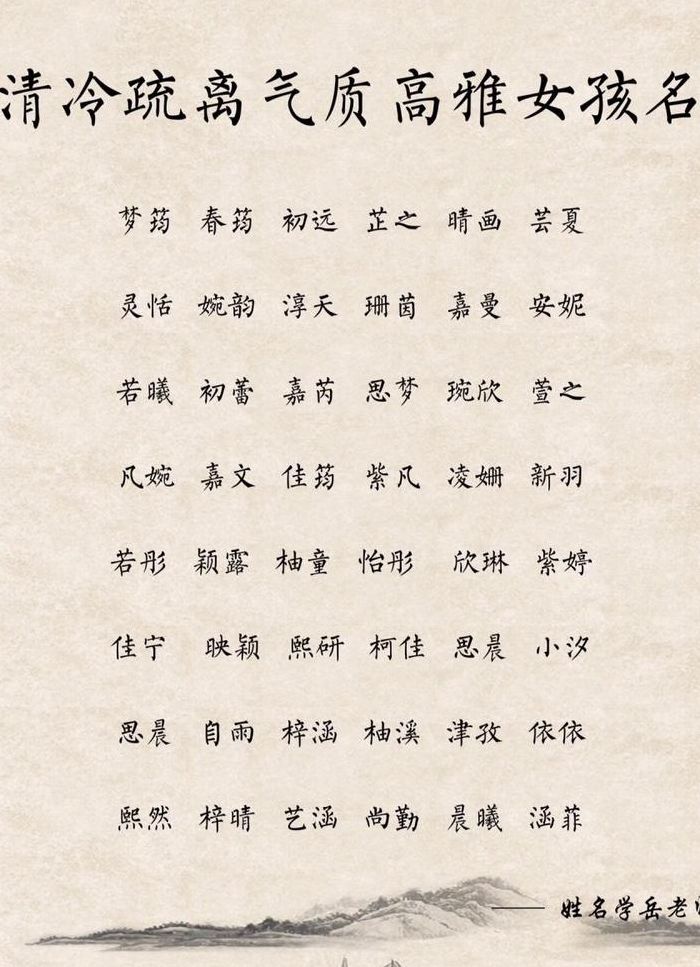 清冷疏离气质高雅女孩名
梦筠 春筠 初远 芷之 晴画 芸夏
灵恬 婉韵 淳天 珊茵 嘉曼 安妮
若曦 初蕾 嘉芮 思梦 琬欣 萱之
凡婉 嘉文 佳筠 紫凡 凌姗 新羽
若彤 颖露 柚童 怡彤 欣琳 紫婷
佳宁 映颖 熙研 柯佳 思晨 小汐
思晨 自雨 梓涵 柚溪 津孜 依依
熙然 梓晴 艺涵 尚勤 晨曦 涵菲
—— 姓名学岳老